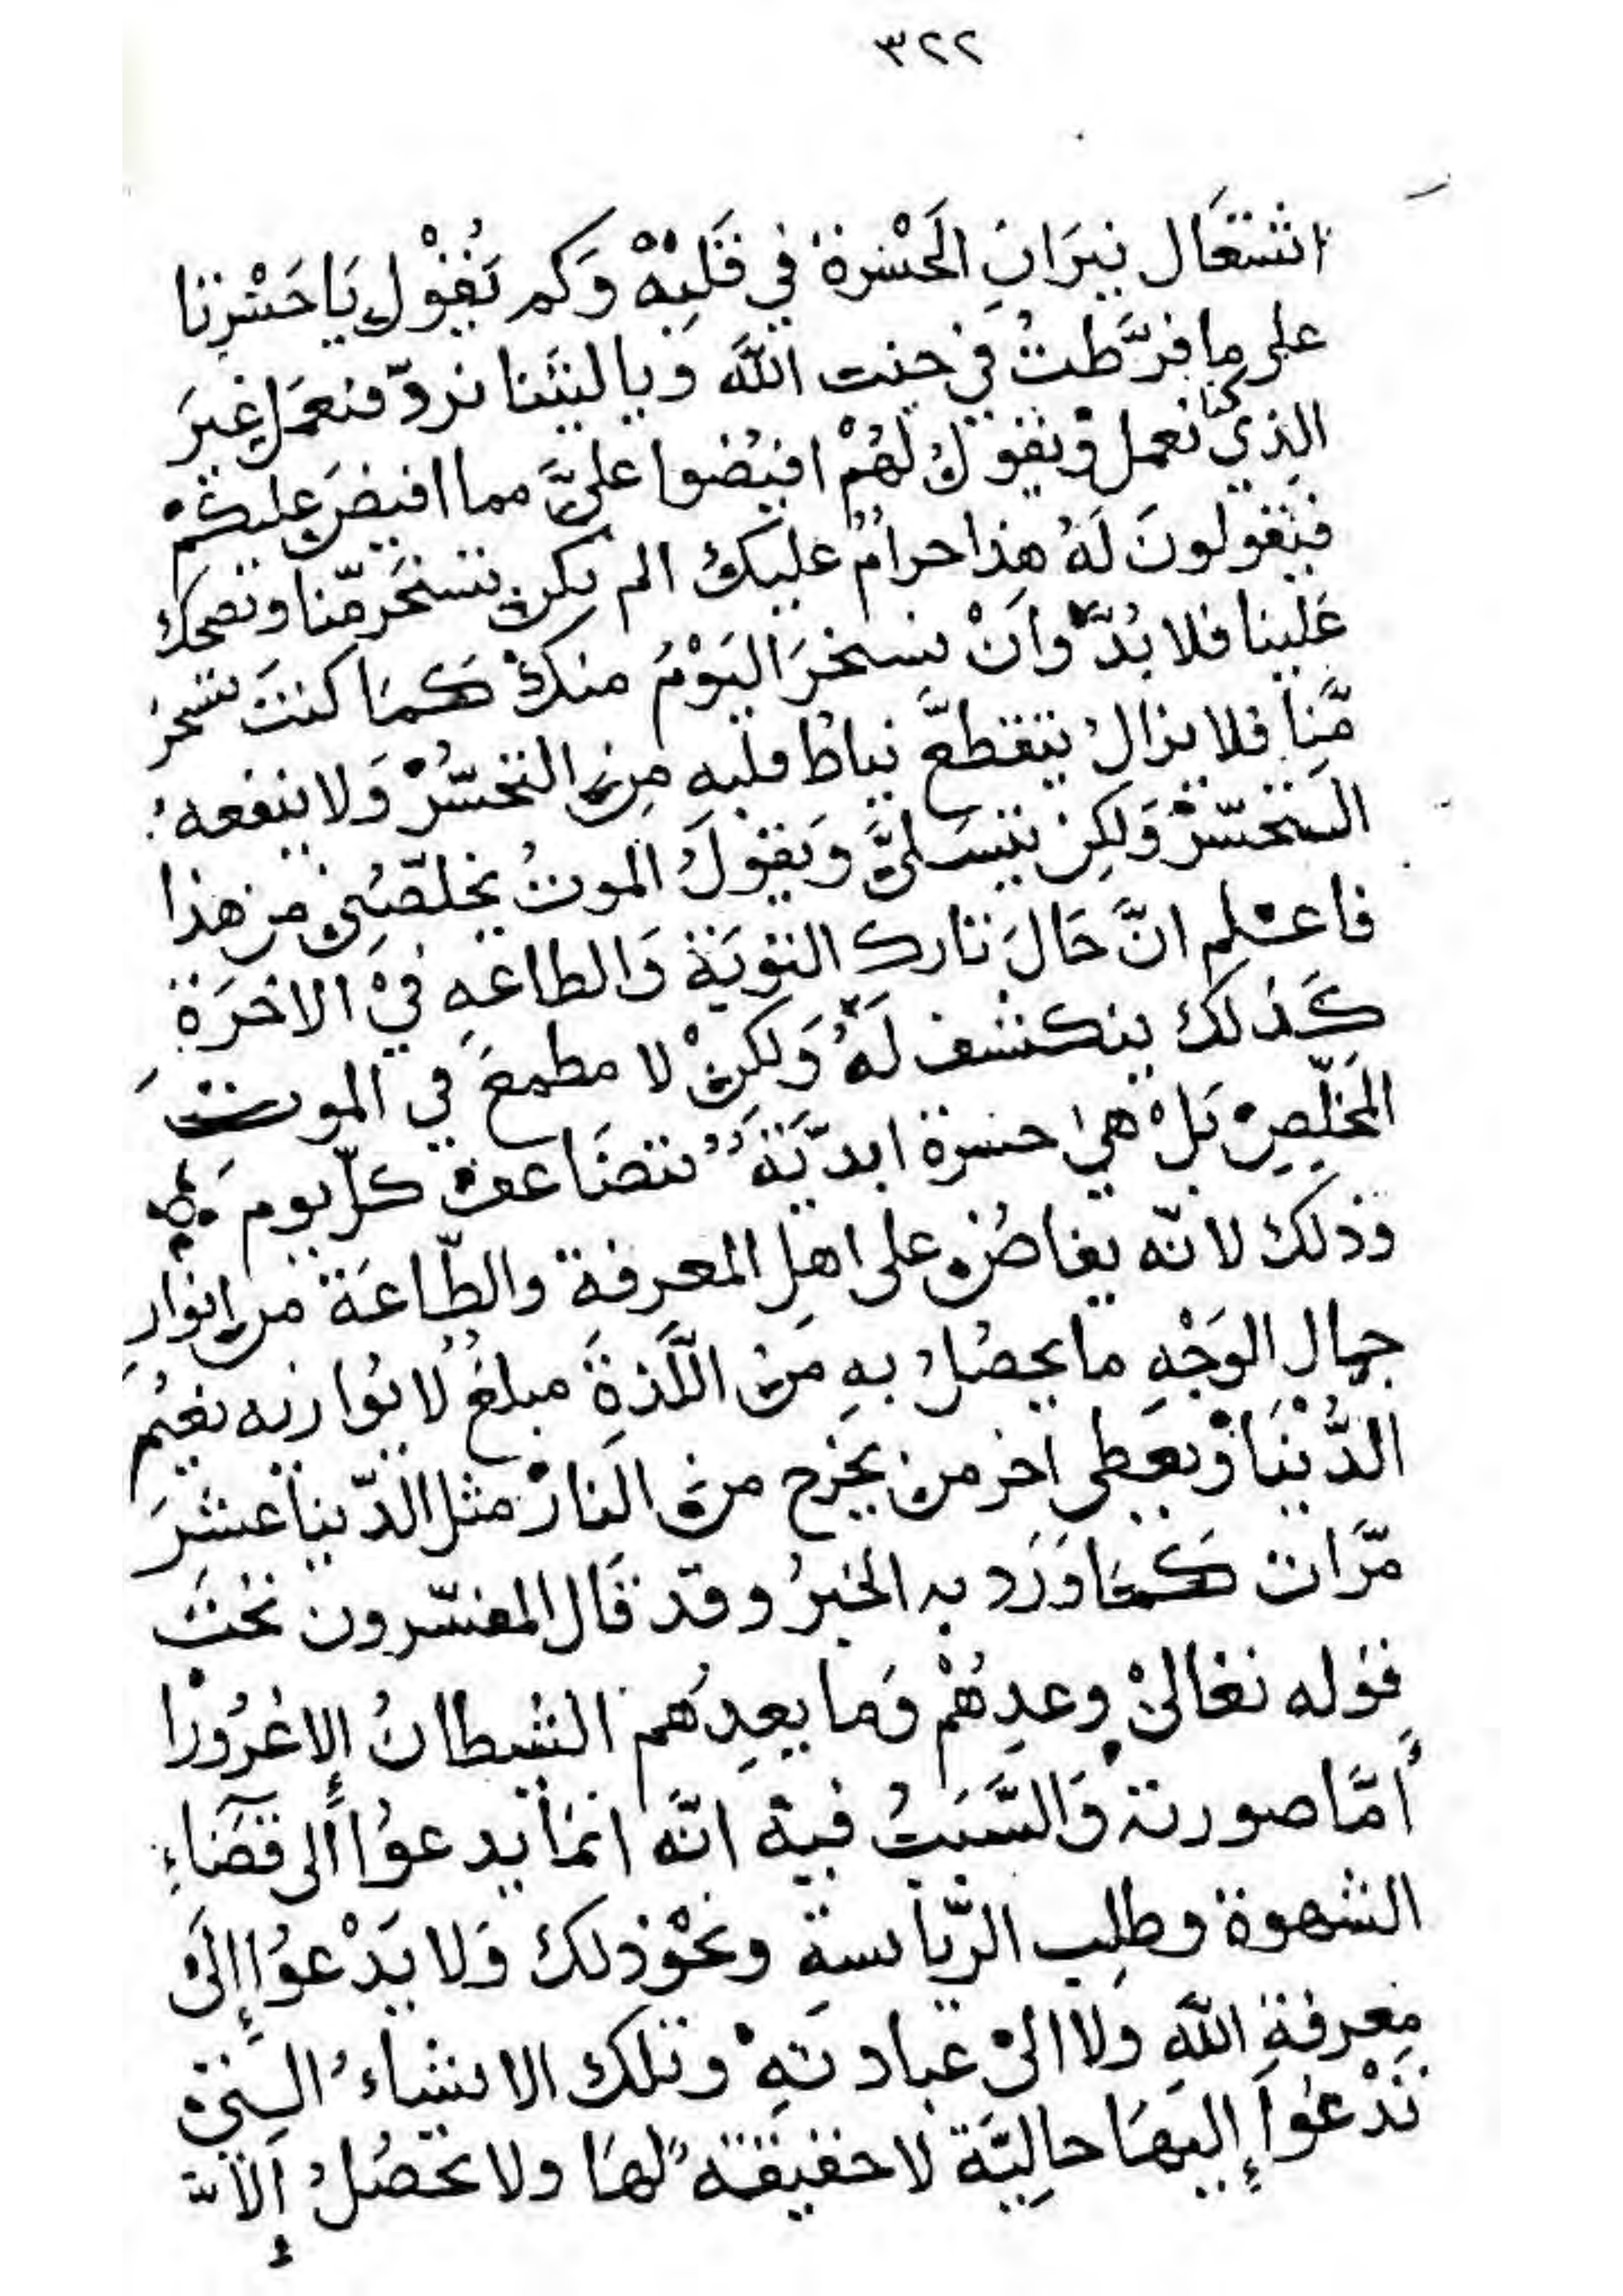 ٣٢٢
اشتعال نيران الحسرة في قلبه وكم يقول يا حسرتا
على ما فرّطت في جنب الله ويا ليتنا نردّ فنعمل غير
الذي كنّا نعمل ويقول لهم افيضوا عليّ مما افيض عليكم
فيقولون له هذا حرام عليك الم تكن تسخر منّا وتضحك
علينا فلا بدّ وان نسخر اليوم منك كما كنت تسخر
منّا فلا يزال يتقطع نياط قلبه من التحسّر ولا ينفعه
التحسّر ولكن يتسلى ويقول الموت يخلّصني من هذا
فاعلم انّ حال تارك التوبة والطاعه في الاخرة
كذلك ينكشف له ولكن لا مطمع في الموت
المخلّص بل هي حسرة ابديّة تتضاعف كلّ يوم
وذلك لانّه يفاض على اهل المعرفة والطّاعة من انوار
جمال الوجه ما يحصل به من اللّذة مبلغ لا يوازيه نعيم
الدّنيا ويعطى اخر من يخرج من النار مثل الدّنيا عشر
مرّات كما ورد به الخبر وقد قال المفسّرون تحت
قوله تعالى وعدهم وما يعدهم الشيطان إلا غرورا
أمّا صورته والسّبب فيه انّه انما يدعوا الى قضاء
الشهوة وطلب الرّياسة ونحو ذلك ولا يدعوا إلى
معرفة الله ولا الى عبادته وتلك الاشياء التي
تدعوا إليها حاليّة لا حقيقة لها ولا تحصل إلا